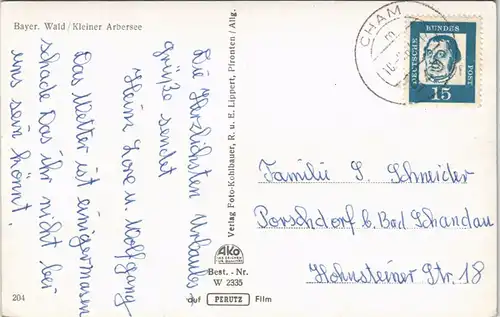 Bayer. Wald / Kleiner Arbersee
Die Herzlichsten Urlaubs=
grüße sendet
Heinz Lore u. Wolfgang
Das Wetter ist einigermasen
schade Das ihr nicht bei
uns sein könnt.
204
Verlag Foto-Kohlbauer, R. u. E. Lippert, Pfronten / Allg.
AKO
Best. - Nr.
W 2335
auf PERUTZ Film
CHAM
DEUTSCHE BUNDES POST
15
Familie S. Schneider
Porschdorf b. Bad Schandau
Hohnsteiner Str. 18